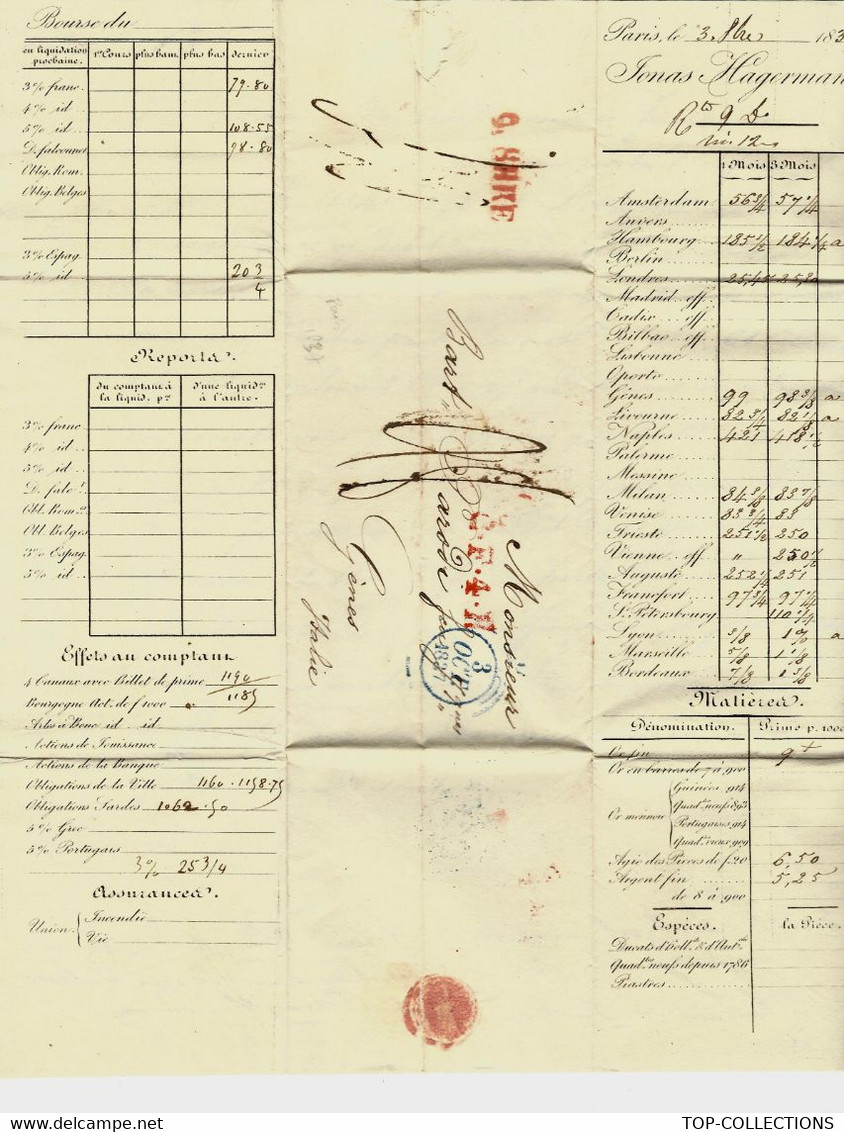 Bourse du
en liquidation prochaine. 1er Cours plus haut plus bas dernier
3% franc. 79.80
4% id.
5% id. 108.55
D. falconnet 98.80
Oblig. Rom.
Oblig. Belges
3% Espag.
5% id. 20 3/4
Reports.
du comptant à la liquid. pne d'une liquidon à l'autre.
3% franc
4% id.
5% id.
D. falct
Obl. Rom.
Obl. Belges
3% Espag.
5% id.
Effets au comptant
4 Canaux avec Billet de prime 1190
Bourgogne Act. de f 1000 1185
Arles à Bouc id. id.
Actions de Jouissance
Actions de la Banque
Obligations de la Ville 1160.1158.75
Obligations Sardes 1062.50
5% Grec
5% Portugais
3% 25 3/4
Assurances.
Union. Incendie
Vie
9. BRE
Monsieur
Bart. Parodi
Gênes
Italie
C.F.4.R
3
OCT
1837
Paris, le 3 8bre 183
Jonas Hagerman
Rte 9 D
1 Mois 3 Mois
Amsterdam 56 3/4 57 1/4
Anvers
Hambourg 185 1/2 184 1/4 a
Berlin
Londres 25,45 25,30
Madrid eff.
Cadix eff.
Bilbao eff.
Lisbonne
Oporto
Gênes 99 98 3/8 a
Livourne 82 3/4 82 1/8 a
Naples 421 418 1/2
Palerme
Messine
Milan 84 3/8 83 7/8
Venise 83 3/4 83
Trieste 251 1/2 250
Vienne eff. " 250 1/2
Auguste 252 1/4 251
Francfort 97 3/4 97 1/4
St. Pétersbourg 110 1/4
Lyon 3/8 1% a
Marseille 5/8 1 1/8
Bordeaux 7/8 1 3/8
Matières.
Dénomination. Prime p. 1000
Or fin 9
Or en barres de 7 à 900
Or monnoie Guinées 914
Quad. neufs 893
Portugaises 914
Quad. vieux 909
Agio des Pièces de f. 20 6,50
Argent fin 5,25
de 8 à 900
Espèces. la Pièce.
Ducats d'Holl. & d'Aut.
Quad. neufs depuis 1786
Piastres
TOP-COLLECTIONS